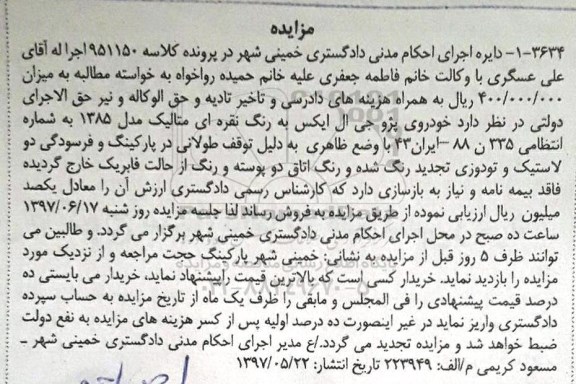 مزایده
۱-۳۶۳۴- دایره اجرای احکام مدنی دادگستری خمینی شهر در پرونده کلاسه ۹۵۱۱۵۰ اجرا له آقای
علی عسگری با وکالت خانم فاطمه جعفری علیه خانم حمیده رواخواه به خواسته مطالبه به میزان
۴۰۰/۰۰۰/۰۰۰ ریال به همراه هزینه های دادرسی و تاخیر تادیه و حق الوکاله و نیر حق الاجرای
دولتی در نظر دارد خودروی پژو جی ال ایکس به رنگ نقره ای متالیک مدل ۱۳۸۵ به شماره
انتظامی ۳۳۵ ن ۸۸ -ایران۴۳ با وضع ظاهری به دلیل توقف طولانی در پارکینگ و فرسودگی دو
لاستیک و تودوزی تجدید رنگ شده و رنگ اتاق دو پوسته و رنگ از حالت فابریک خارج گردیده
فاقد بیمه نامه و نیاز به بازسازی دارد که کارشناس رسمی دادگستری ارزش آن را معادل یکصد
میلیون ریال ارزیابی نموده از طریق مزایده به فروش رساند لذا جلسه مزایده روز شنبه ۱۳۹۷/۰۶/۱۷
ساعت ده صبح در محل اجرای احکام مدنی دادگستری خمینی شهر برگزار می گردد. و طالبین می
توانند ظرف ۵ روز قبل از مزایده به نشانی: خمینی شهر پارکینگ حجت مراجعه و از نزدیک مورد
مزایده را بازدید نماید. خریدار کسی است که بالاترین قیمت را پیشنهاد نماید، خریدار می بایستی ده
درصد قیمت پیشنهادی را فی المجلس و مابقی را ظرف یک ماه از تاریخ مزایده به حساب سپرده
دادگستری واریز نماید در غیر اینصورت ده درصد اولیه پس از کسر هزینه های مزایده به نفع دولت
ضبط خواهد شد و مزایده تجدید می گردد./ع مدیر اجرای احکام مدنی دادگستری خمینی شهر -
مسعود کریمی م/الف: ۲۲۳۹۴۹ تاریخ انتشار: ۱۳۹۷/۰۵/۲۲